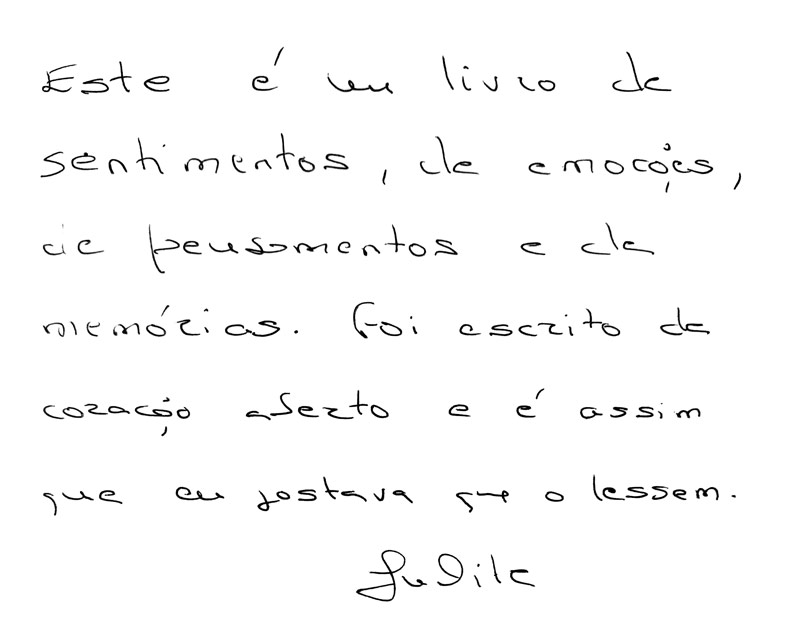 Este é um livro de
sentimentos, de emoções,
de pensamentos e de
memórias. Foi escrito de
coração aberto e é assim
que eu gostava que o lessem.
Judite